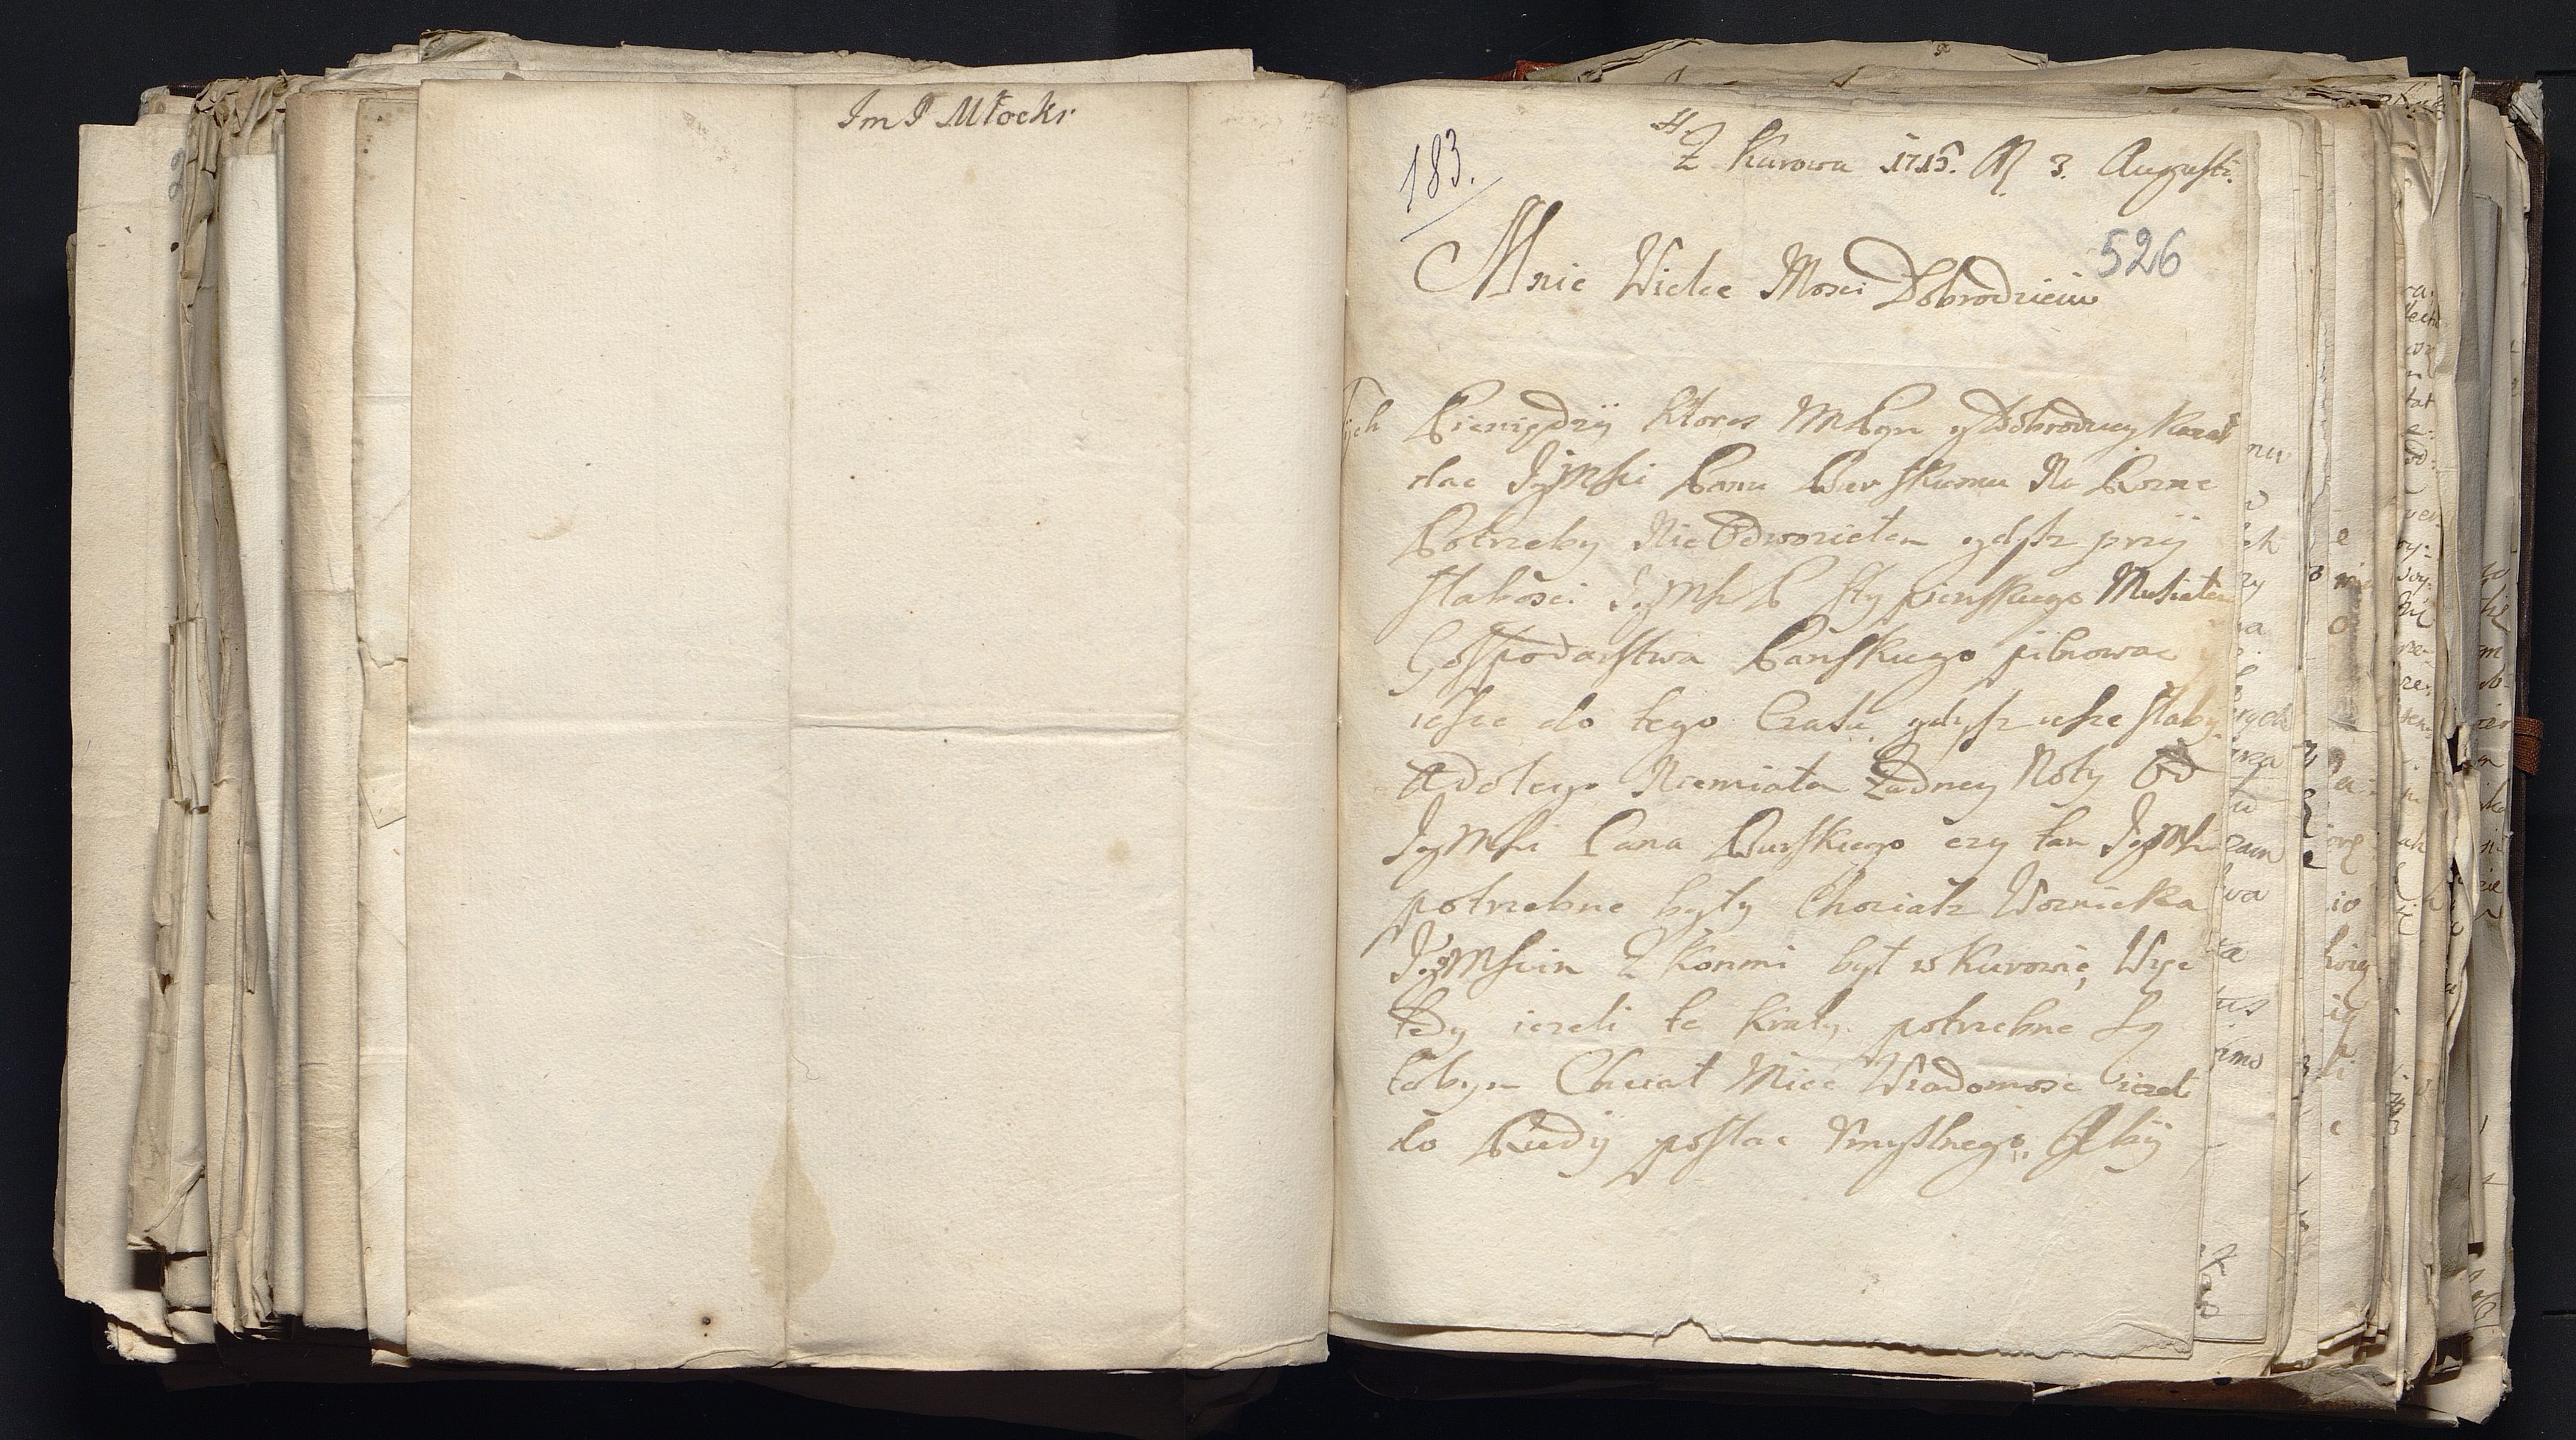 Im P Młocki
183.
Z Kurowa 1715. D 3. Augusti.
526
Mnie Wielce Mosci Dobrodzieiu
Tych Pieniędzÿ ktores WMPan y Dobrodziey kazał
dac JeyMsci Panu Burskiemu Na Rozne
Potrzeby Nie Odwoziełem gdysz przÿ
słabosci JegMsci P Stypinskiego Musiałem
Gospodarstwa Panskiego pilnowac
iesze do tego Czasu, gdysz iesze słaby.
Adotego Niemiałem Żadney Noty Od
JegMsci Pana Burskiego czy tam JegMsci
potrzebne były Choziasz Woznicka
JegMscin Z Konmi był w Kurowie, Więc
tedy iezeli te Kraty potrzebne Są
tobym Chciał Miec Wiadomosc iezeli
do Rudÿ posłac Vmyslnego,